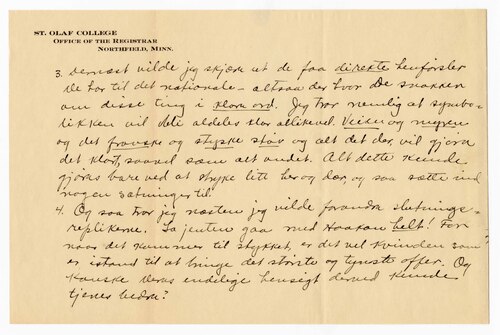 ST. OLAF COLLEGE
OFFICE OF THE REGISTRAR
NORTHFIELD, MINN.
3. Dernæst vilde jeg skjære ut de faa direkte henførsler
De har til det nationale – altsaa der hvor De snakker
om disse ting i klare ord. Jeg tror nemlig at symbo-
likken vil bli aldeles klar allikevel. Veien og myren
og det franske og tyske støv og alt det der, vil gjøra
det klart, saavel som alt andet. Alt dette kunde
gjøres bare ved at stryke litt her og der, og saa sætte ind
nogen sætninger til.
4. Og saa tror jeg næsten jeg vilde forandra slutnings-
replikerne. La jenten gaa med Haakon helt! For
naar det kommer til stykket, er det vel kvinden som
er istand til at bringe det største og tyngste offer. Og
kanske Deres endelige hensigt derved kunde
tjenes bedre?